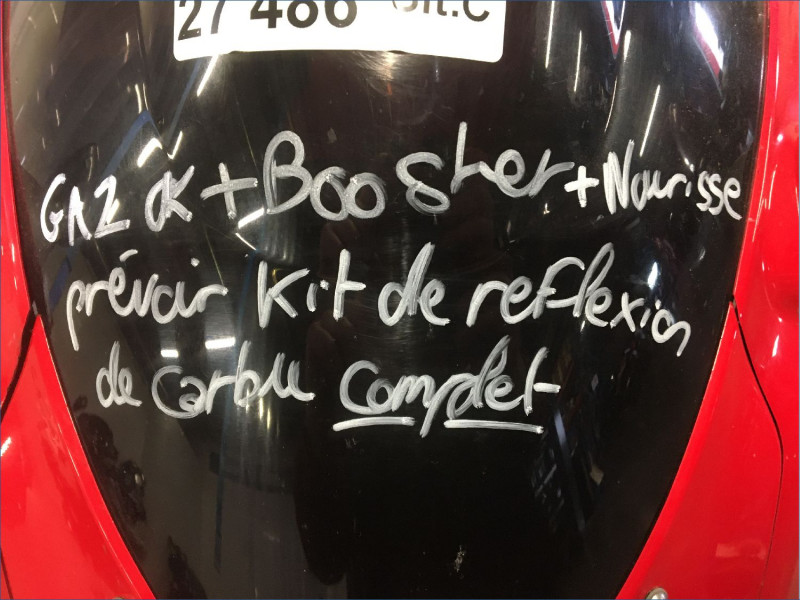 27 486 Git.C
GAZ OK + Booster + Nourisse
prévoir kit de reflexion
de carbu complet